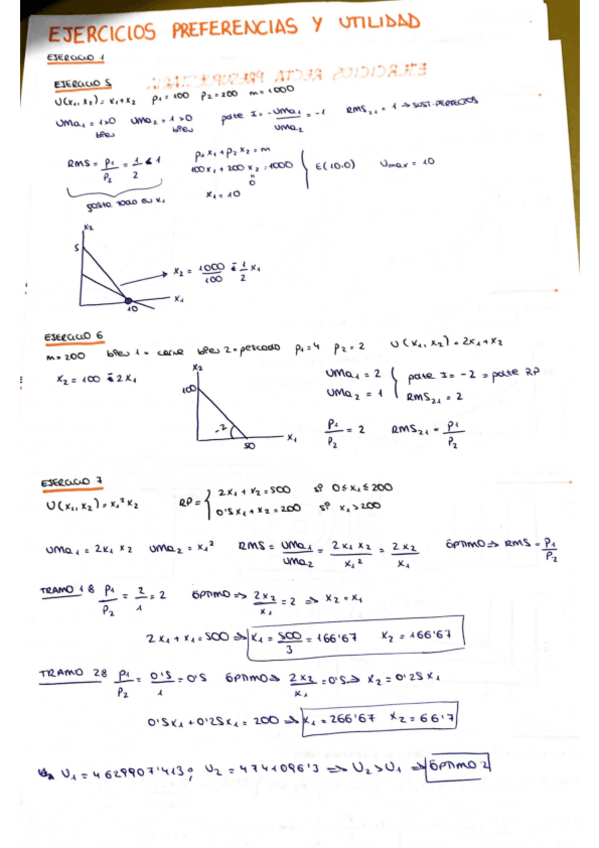 EJERCICIOS PREFERENCIAS Y UTILIDAD
EJERCICIO 1
EJERCICIO 5
U(x₁, x₂) = x₁+x₂ p₁=100 p₂=200 m=1000
UMa₁ = 1>0 UMa₂ = 1>0 pdte I = -UMa₁/UMa₂ = -1 RMS₂₁ = 1 → SUST. PERFECTOS
bien bien
RMS = p₁/p₂ = 1/2 < 1 p₁x₁+p₂x₂=m
100x₁+200x₂=1000 E(10,0) Umax = 10
0
gasta todo en x₁ x₁=10
x₂
5
x₂ = 1000/100 - 1/2 x₁
x₁
10
EJERCICIO 6
m=200 bien 1 = carne bien 2 = pescado p₁=4 p₂=2 U(x₁, x₂) = 2x₁+x₂
x₂ = 100 - 2x₁
x₂
100
-2
50
x₁
UMa₁ = 2
UMa₂ = 1
pdte I = -2 = pdte RP
RMS₂₁ = 2
p₁/p₂ = 2 RMS₂₁ = p₁/p₂
EJERCICIO 7
U(x₁, x₂) = x₁²x₂ RP = { 2x₁+x₂=500 si 0≤x₁≤200
0'5x₁+x₂=200 si x₁>200
UMa₁ = 2x₁x₂ UMa₂ = x₁² RMS = UMa₁/UMa₂ = 2x₁x₂/x₁² = 2x₂/x₁ ÓPTIMO ⇒ RMS = p₁/p₂
TRAMO 1: p₁/p₂ = 2/1 = 2 ÓPTIMO ⇒ 2x₂/x₁ = 2 ⇒ x₂ = x₁
2x₁+x₁=500 ⇒ x₁ = 500/3 = 166'67 x₂ = 166'67
TRAMO 2: p₁/p₂ = 0'5/1 = 0'5 ÓPTIMO ⇒ 2x₂/x₁ = 0'5 ⇒ x₂ = 0'25x₁
0'5x₁+0'25x₁ = 200 ⇒ x₁ = 266'67 x₂ = 66'7
U₁ = 4629907'413; U₂ = 4741096'3 ⇒ U₂>U₁ ⇒ ÓPTIMO 2